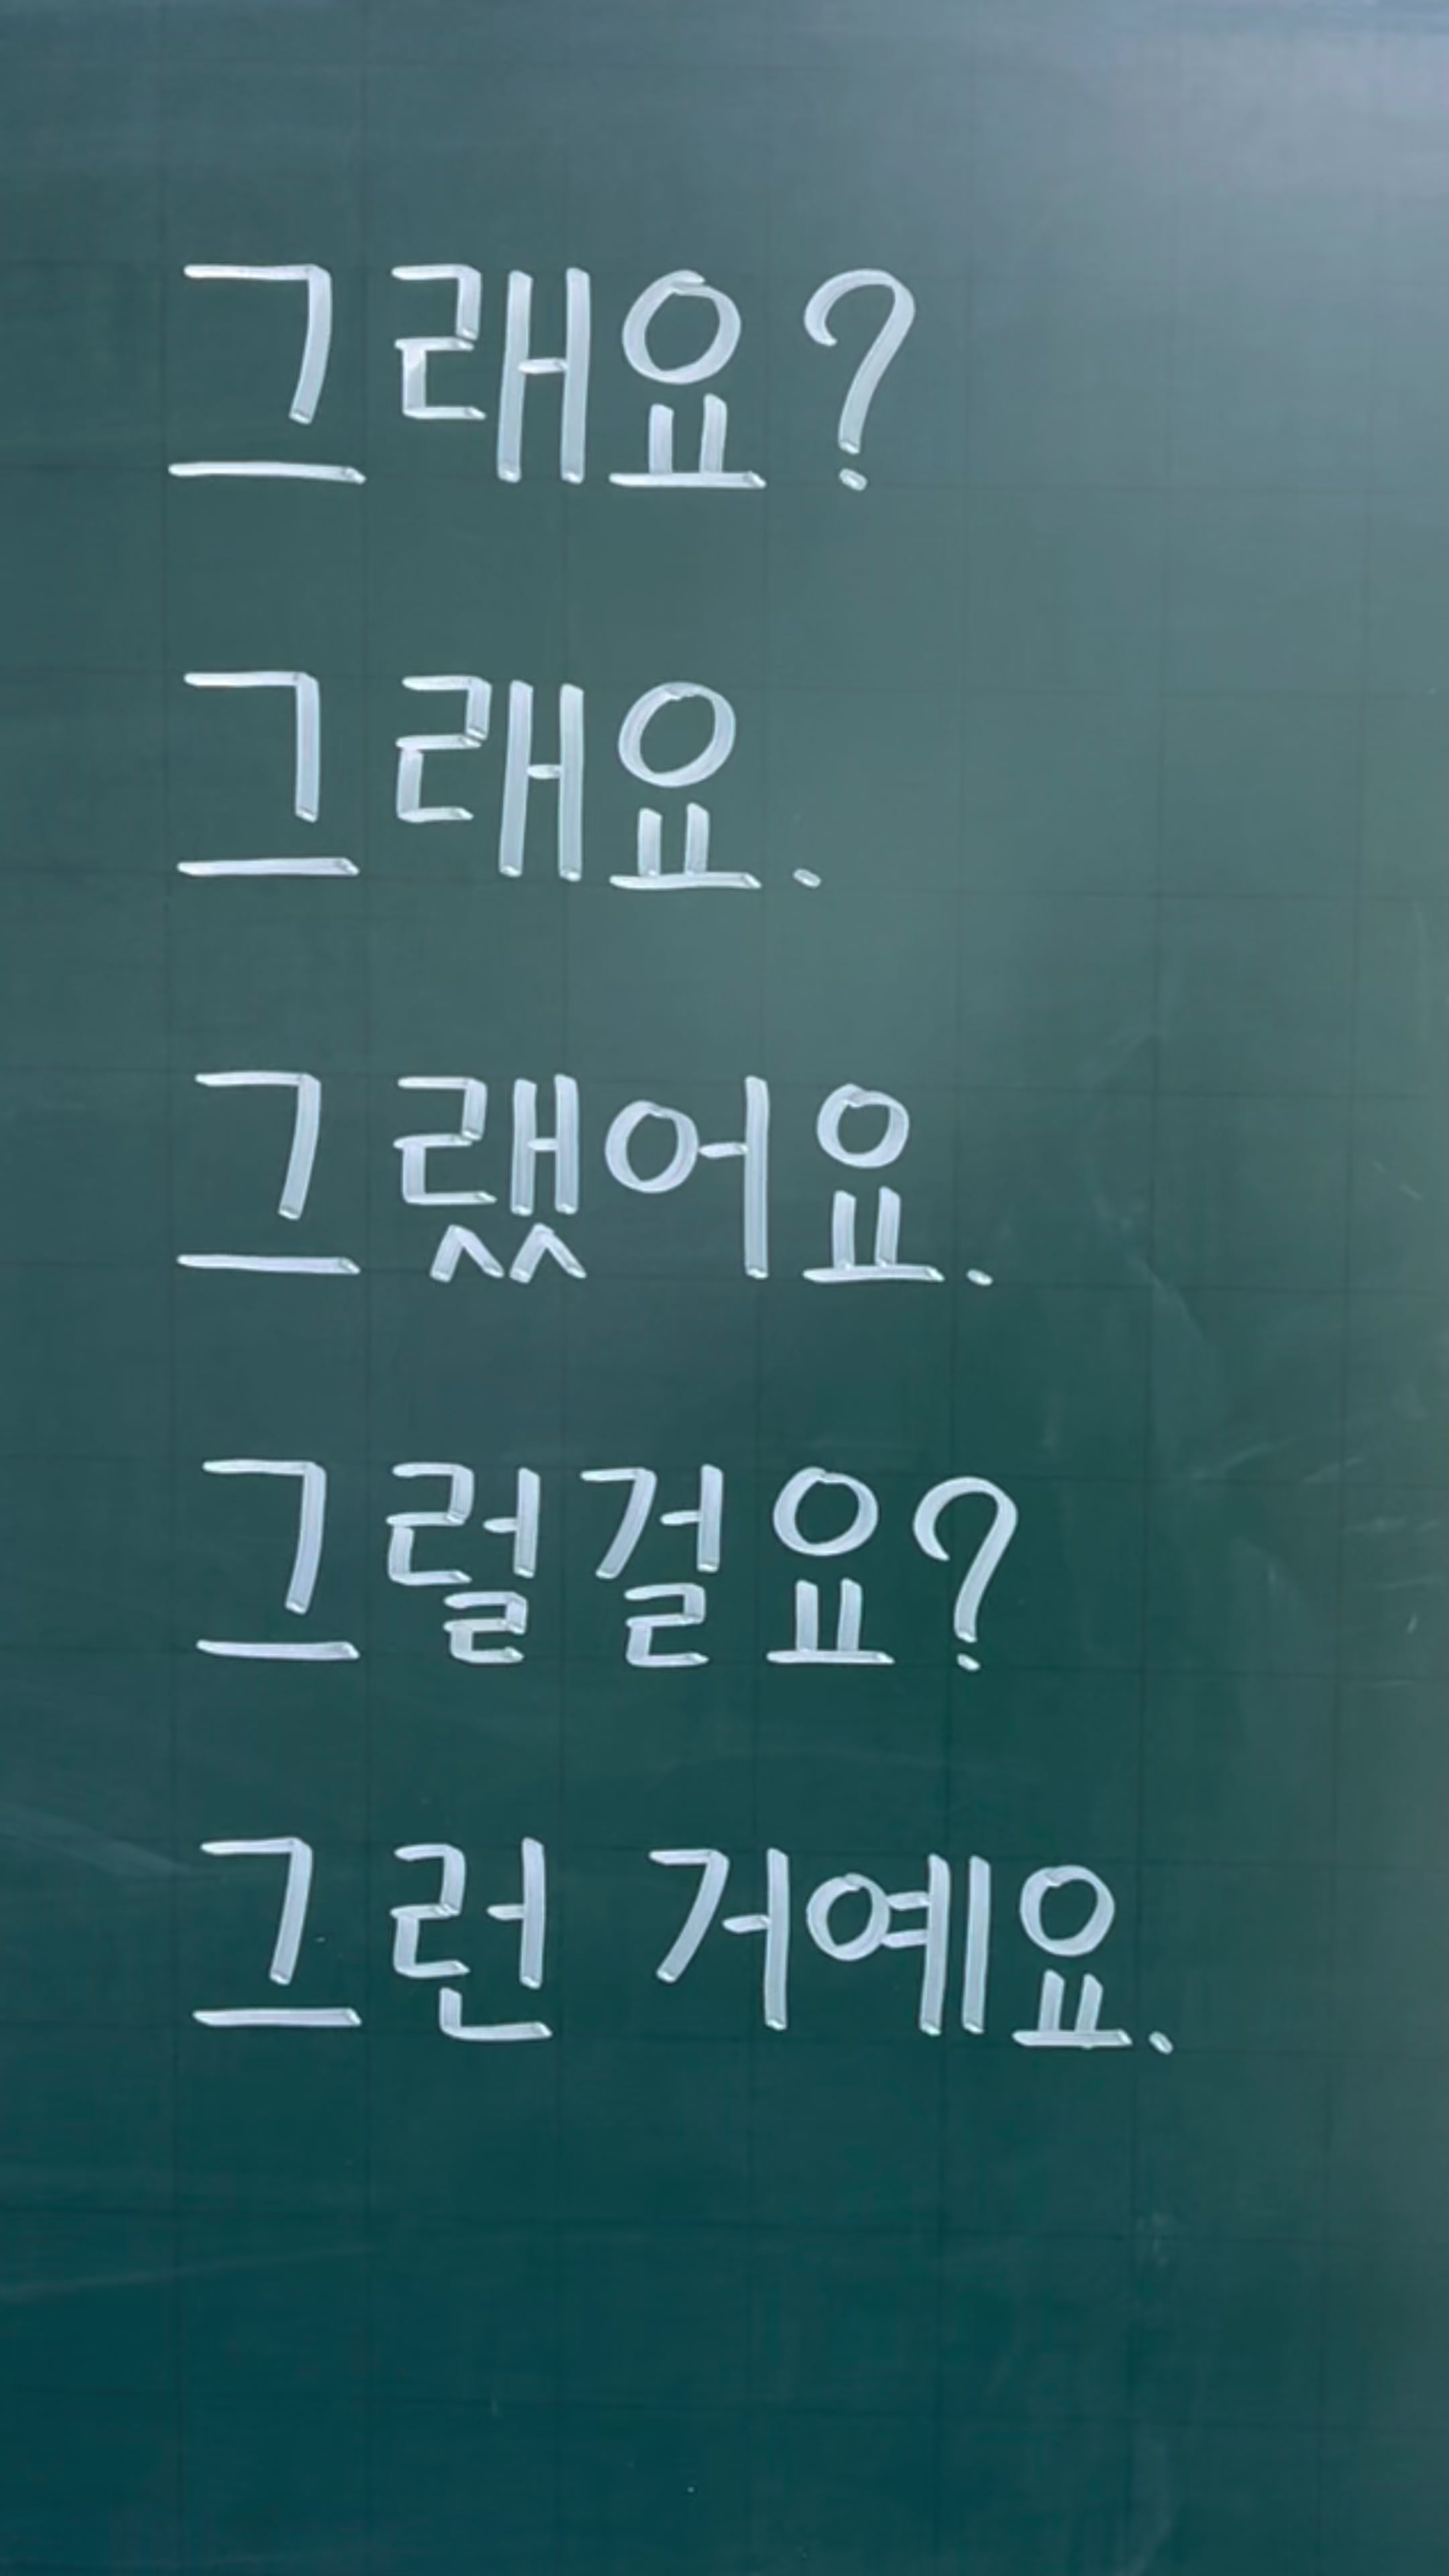 그래요?
그래요.
그랬어요.
그럴걸요?
그런 거예요.